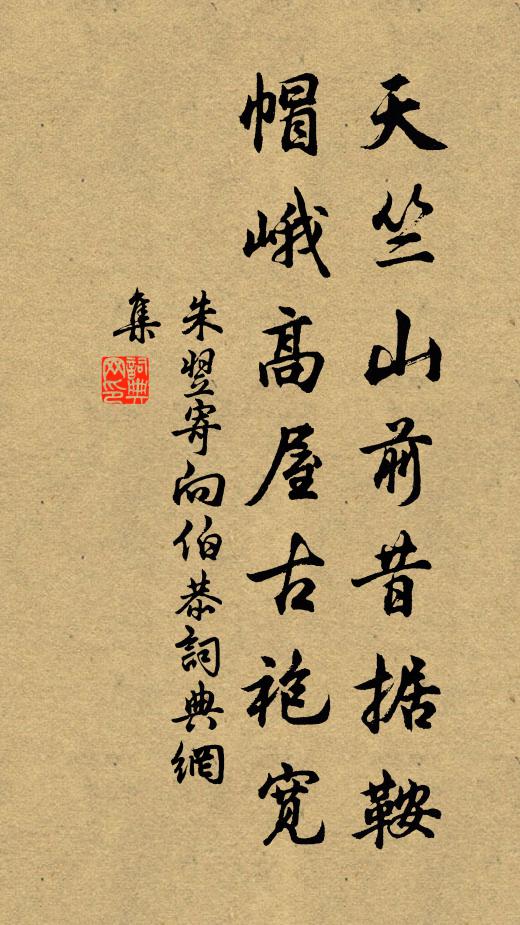 天竺山前昔据鞍
帽峨高屋古袍寛
朱翌寄向伯恭詞典網
集
詞典
网印